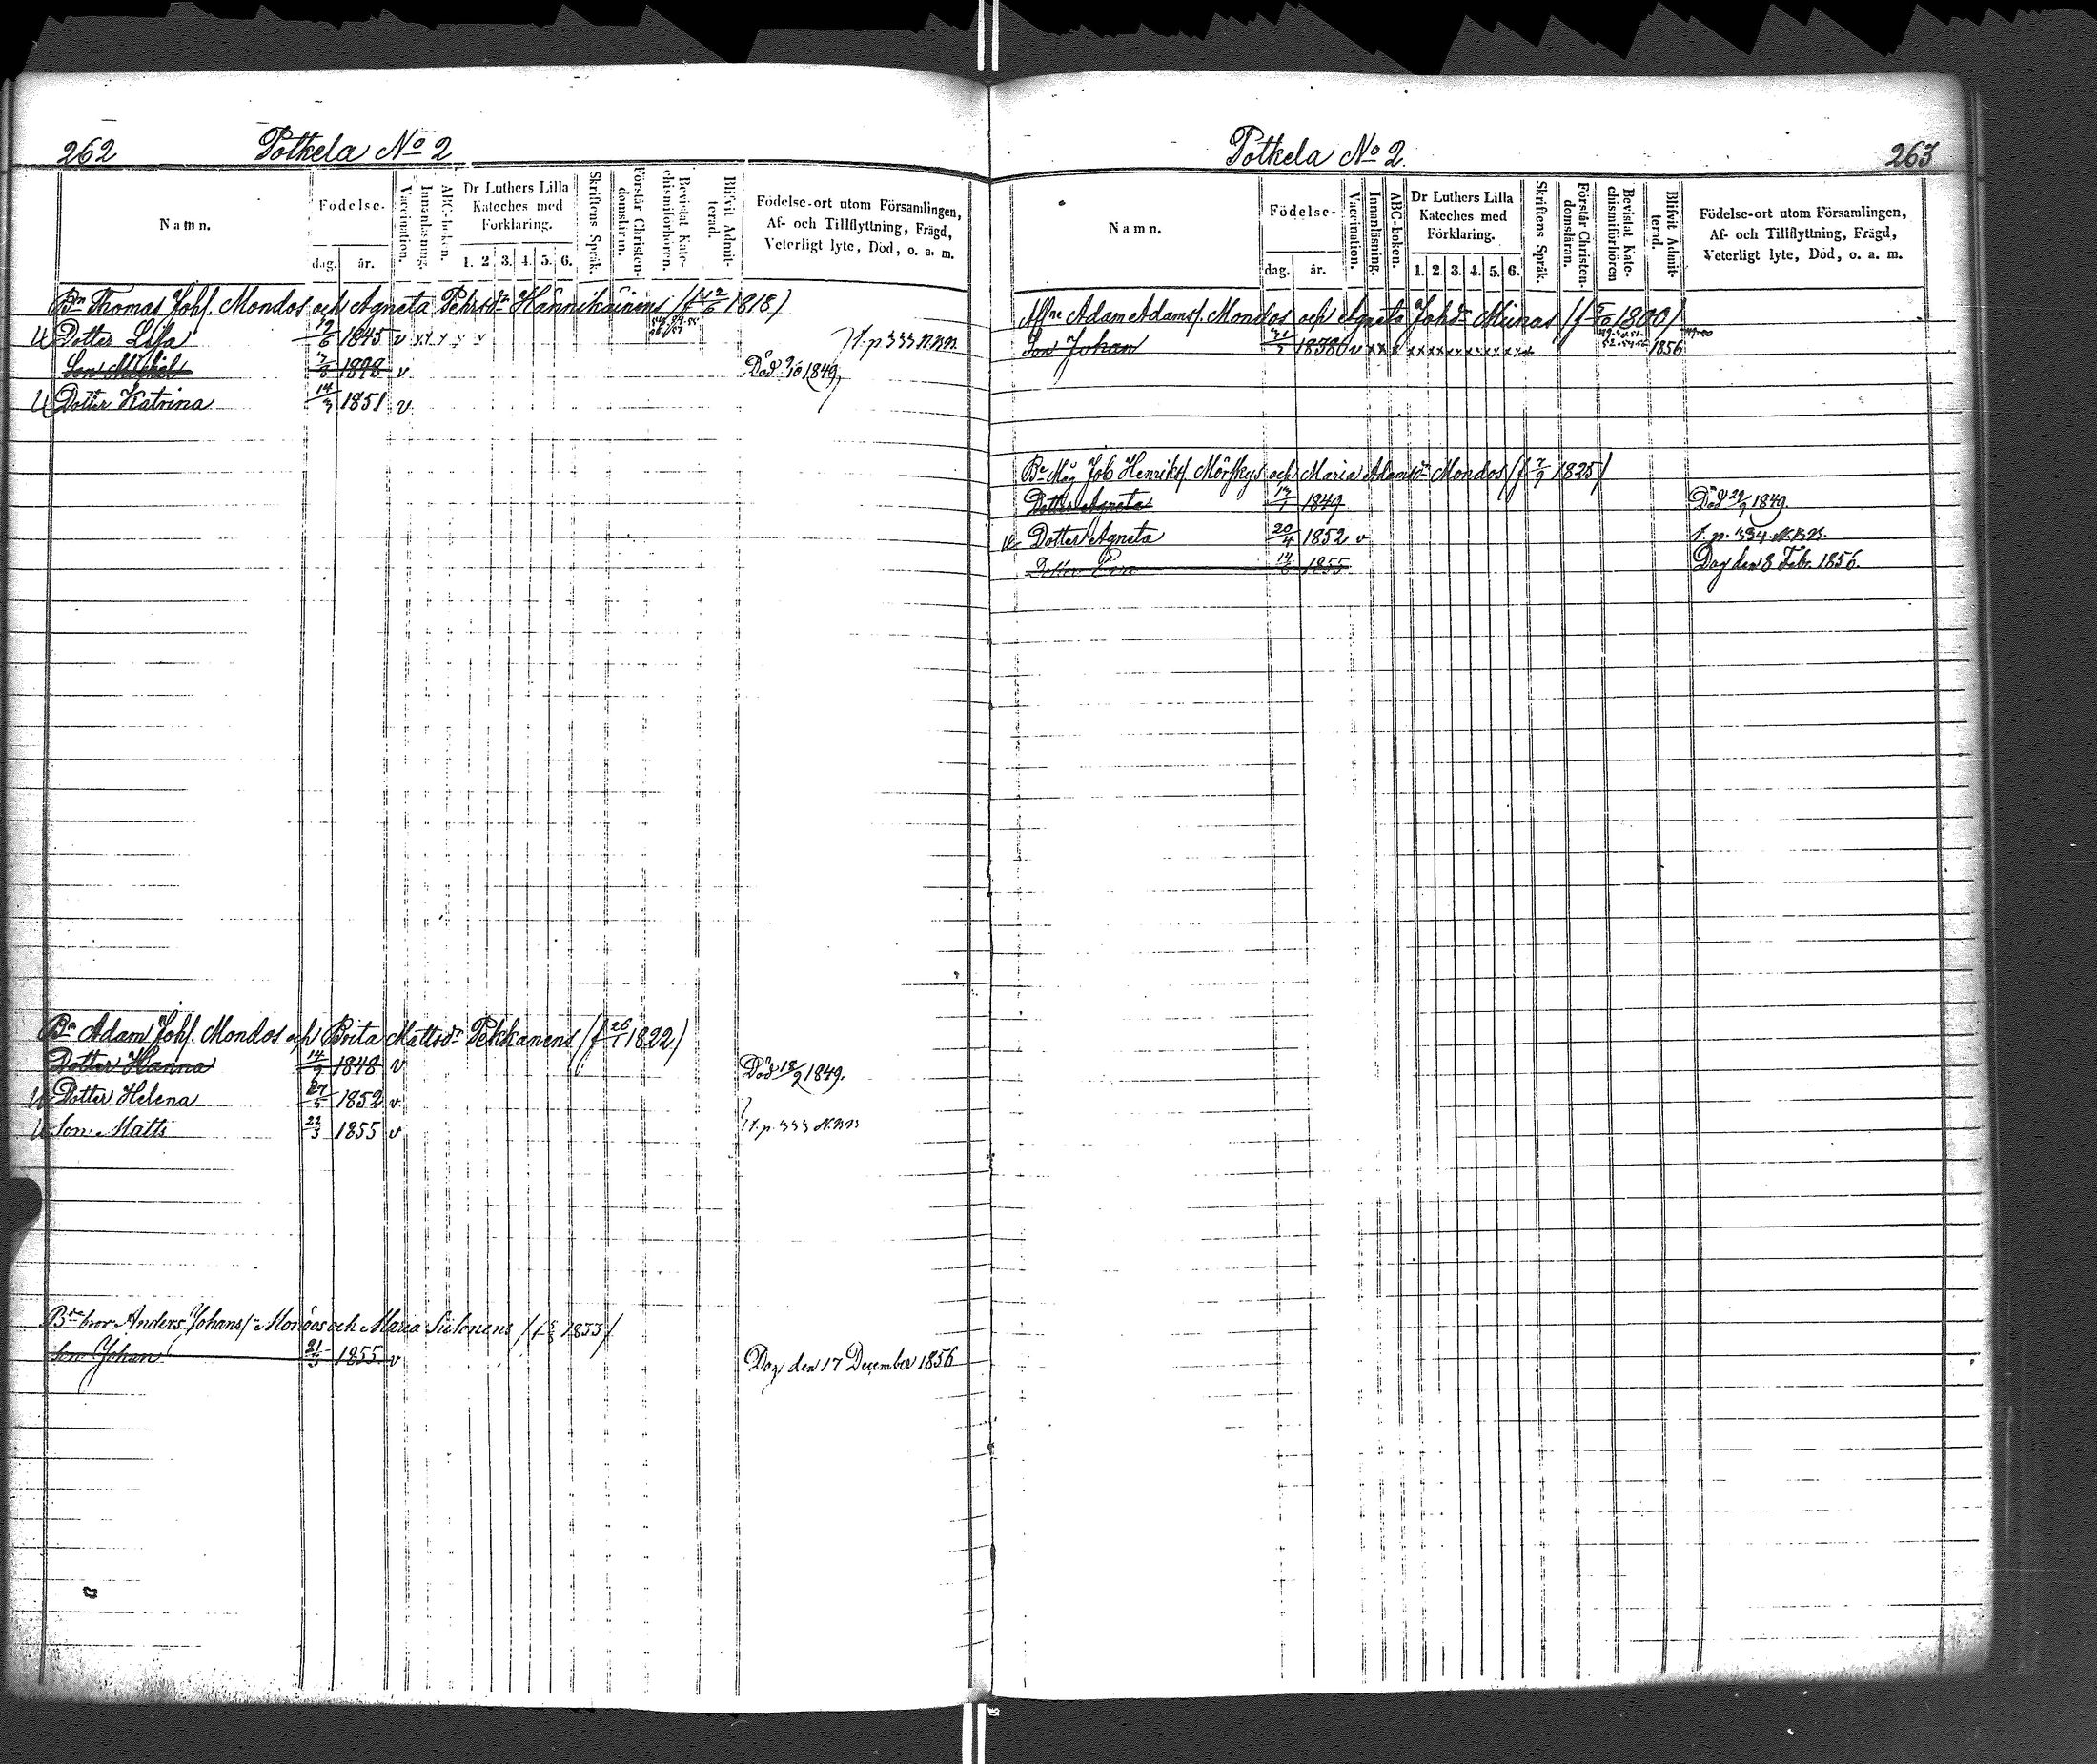 262 Potkela No 2
Namn. Födelse- dag. år. Vaccination. Innanläsning. ABC-boken. Dr Luthers Lilla Kateches med Förklaring. 1. 2. 3. 4. 5. 6. Skriftens Språk. Förstår Christendomsläran. Bevistat Katechismiförhören. Blifvit Admitterad. Födelse-ort utom Församlingen, Af- och Tillflyttning, Frägd, Veterligt lyte, Död, o. a. m.
Bn Thomas Johs. Mondos och Agneta Pehrsdr Hännikäinens (f 12/6 1818)
Dotter Lisa 19/6 1845 v x x v v v
Son Michel 1848 v Död 1849
Dotter Katrina 14/3 1851 v
Bn Adam Johs. Mondos och Brita Mattsdr Pekkanens (f 26/1 1822)
Dotter Hanna 14/9 1848 v Död 18/2 1849.
Dotter Helena 27/5 1852 v
Son Matts 22/3 1855 v f. p. 333
bror Anders Johans. Mondos och Maria Sulonens 1833
Son Johan 21/3 1855 v Dog den 17 December 1856
Potkela No 2. 263
Namn. Födelse- dag. år. Vaccination. Innanläsning. ABC-boken. Dr Luthers Lilla Kateches med Förklaring. 1. 2. 3. 4. 5. 6. Skriftens Språk. Förstår Christendomsläran. Bevistat Katechismiförhören Blifvit Admitterad. Födelse-ort utom Församlingen, Af- och Tillflyttning, Frägd, Veterligt lyte, Död, o. a. m.
Adam Adams. Mondos och Agneta Johsdr 1800
Son Johan 1838 v x x x x x x x x x x x x x 1856
Bn Måg Job Henriks. Mörskys och Maria Adamsdr Mondos (f 7/9 1825)
Dotter Agneta 1849 Död 1849.
Dotter Agneta 20/4 1852 v f. p. 334
Dotter 1855 Dog den 8 Febr. 1856.